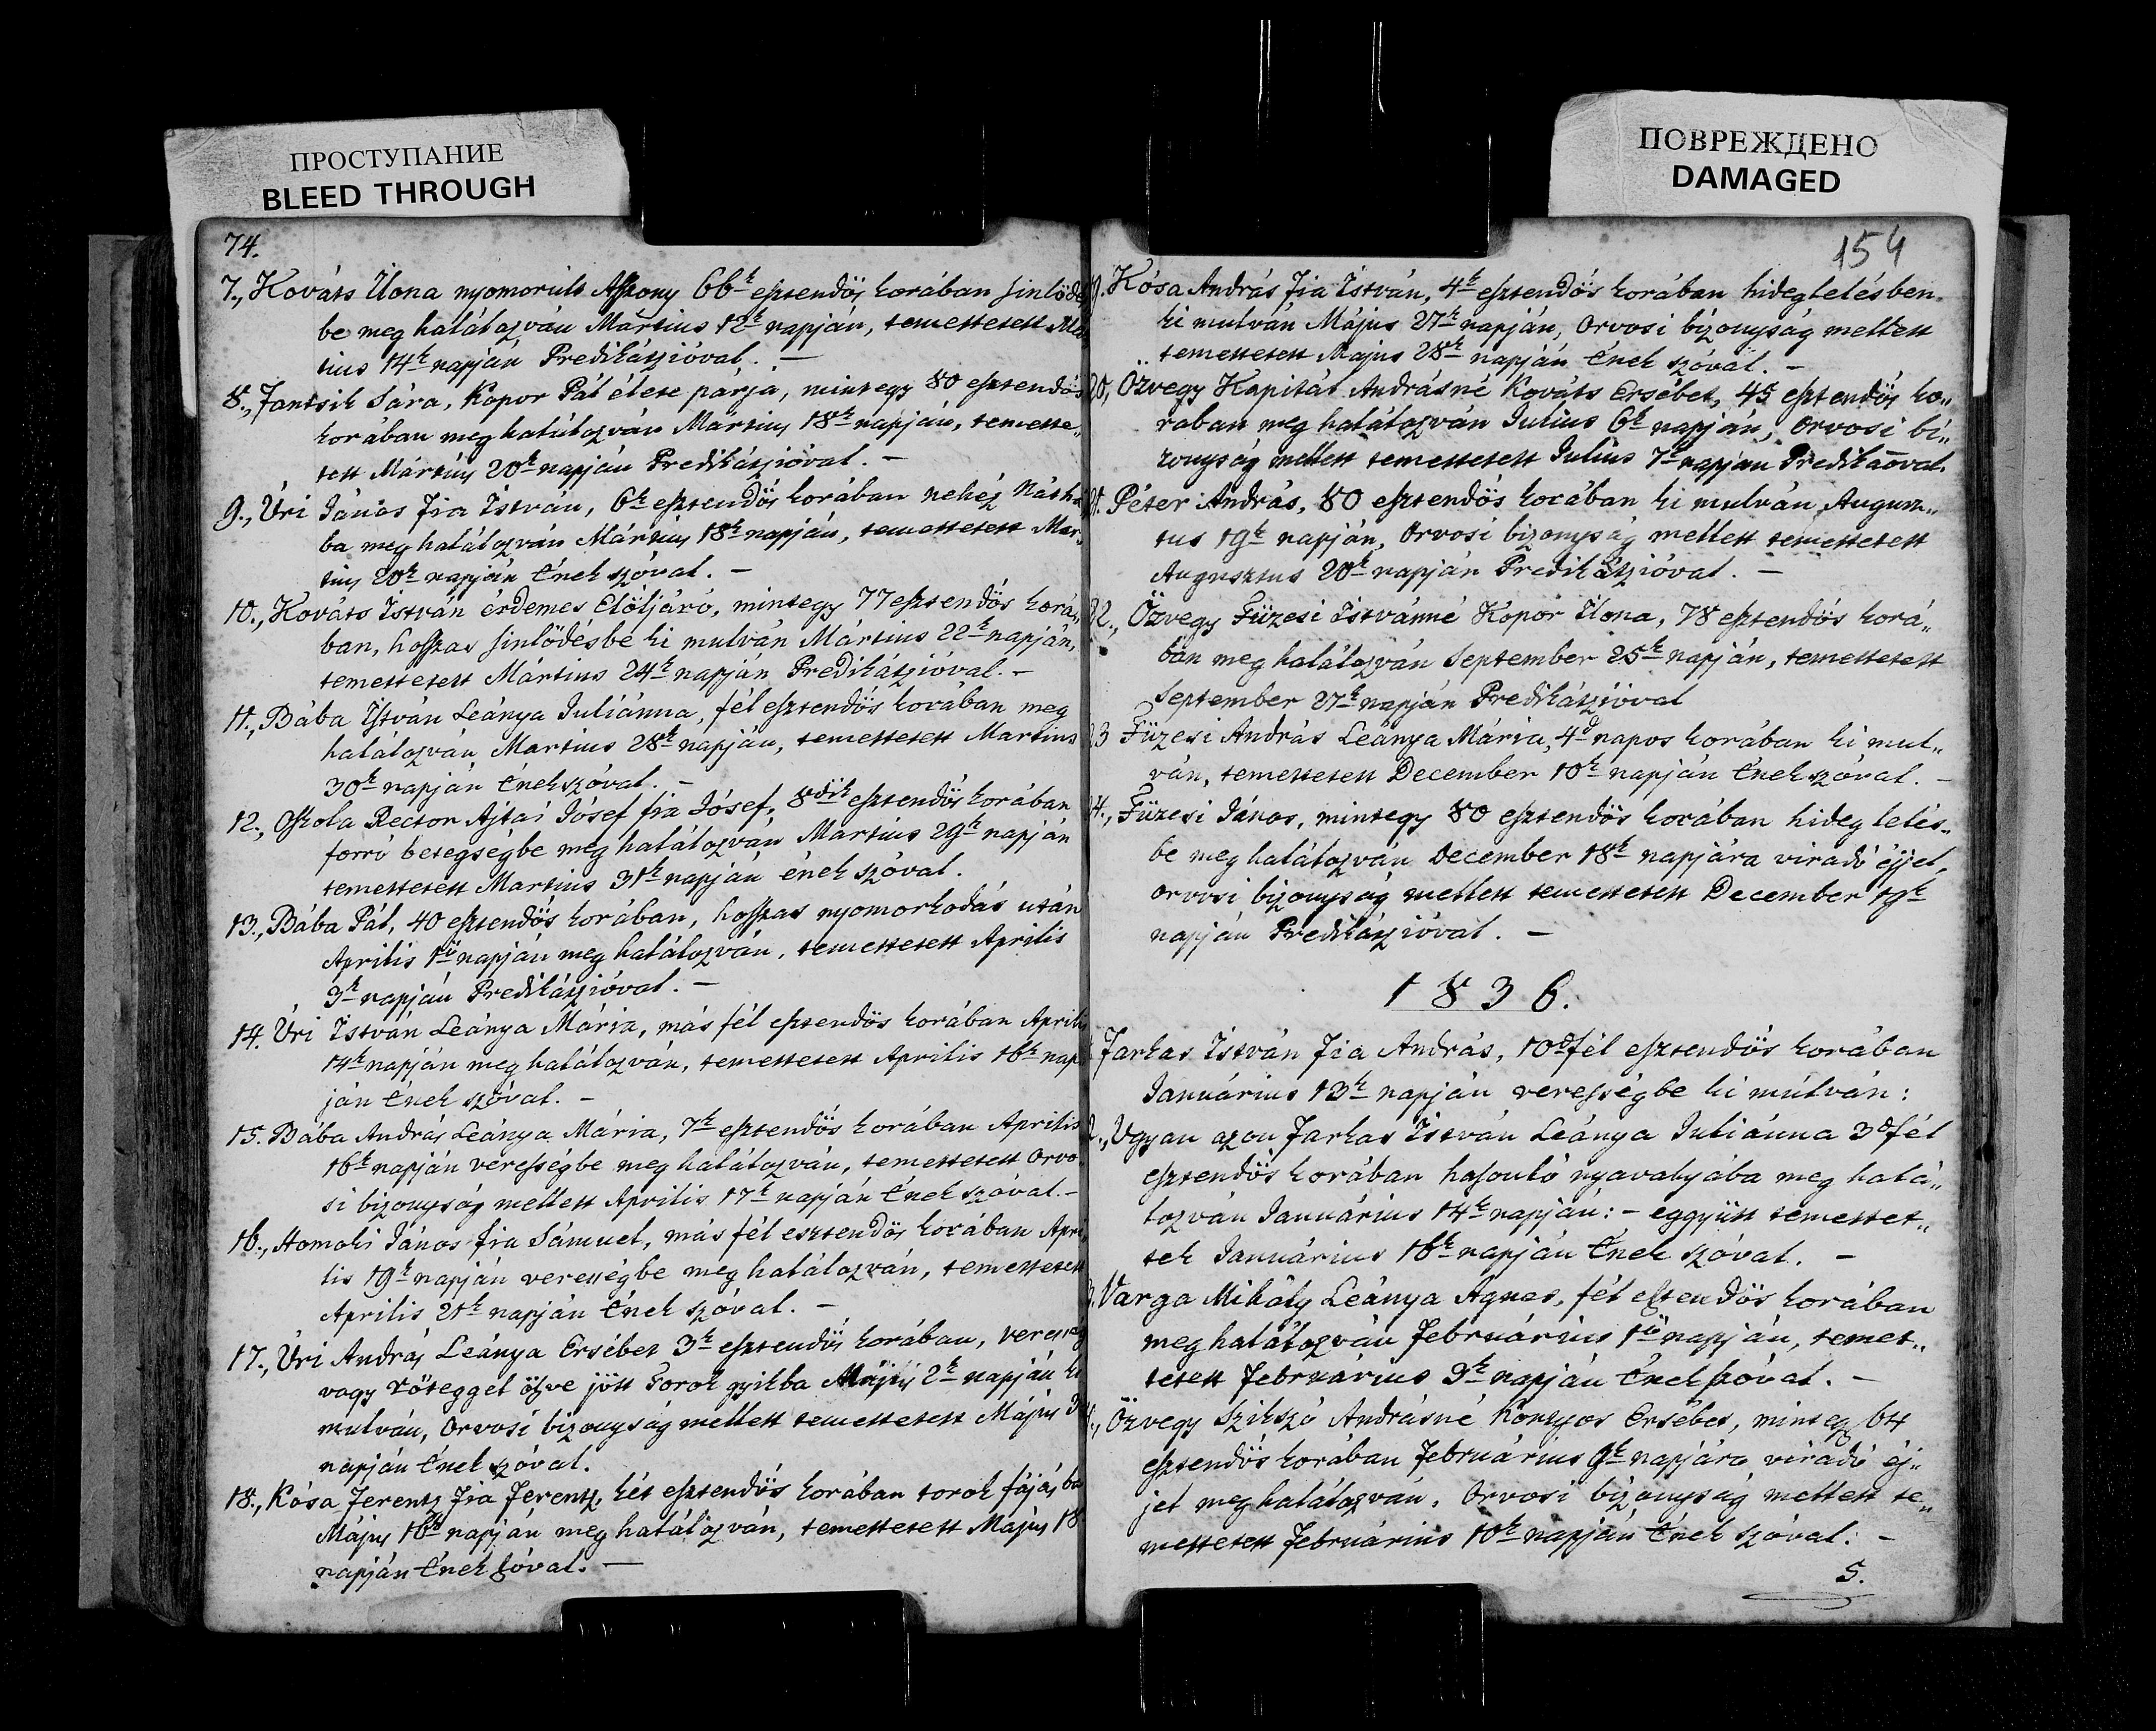 ПРОСТУПАНИЕ
BLEED THROUGH
74.
7., Kováts Ilona nyomorúlt Aſszony 66k esztendős korában sinlődé
be meg halálozván Mártius 12k napján, temettetett Már
tius 14k napján Predikátzióval. —
8., Jantsik Sára, Kopor Pál élete párja, mintegy 80 esztendős
korában meg halálozván Martius 18k napján, temette„
tett Mártius 20k napján Predikátzióval. —
9., Úri János Fia István, 6k esztendős korában nehéz náthá
ba meg halálozván Mártius 18k napján, temettetett Mar„
tius 20k napján Ének szóval. —
10., Kováts István érdemes Elöljáró, mintegy 77 esztendős korá„
ban, hoſszas sinlődésbe ki mulván Mártius 22k napján,
temettetett Mártius 24k napján Predikátzióval. —
11., Bába István Leánya Juliánna, fél esztendős korában meg
halálozván Martius 28k napján, temettetett Martius
30k napján Énekszóval. —
12., Oskola Rector Ajtai Jósef fia Jósef, 8dik esztendős korában
forró betegségbe meg halálozván Martius 29k napján
temettetett Martius 31k napján ének szóval.
13., Bába Pál, 40 esztendős korában, hoſszas nyomorkodás után
Aprilis 1ő napján meg halálozván, temettetett Aprilis
3k napján Predikátzióval. —
14. Úri István Leánya Mária, más fél esztendős korában Aprilis
14k napján meg halálozván, temettetett Aprilis 16k nap
ján Ének szóval. —
15. Bába András Leánya Mária, 7k esztendős korában Aprilis
16k napján vereſségbe meg halálozván, temettetett Orvo
si bizonyság mellett Aprilis 17k napján Ének szóval. —
16., Homoki János fia Sámuel, más fél esztendős korában Apri
lis 19k napján verességbe meg halálozván, temettetett
Aprilis 21k napján Ének szóval. —
17., Úri András Leánya Ersébet 3k esztendős korában, veresseg
vagy vöteggel öszve jött Torok gyikba Május 2k napján ki
mulván, Orvosi bizonyság mellett temettetett Május
napján Ének szóval.
18., Kósa Ferentz Fia Ferentz, két esztendős korában torok fájásba
Május 16k napján meg halálozván, temettetett Május 18
napján Ének szóval. —
ПОВРЕЖДЕНО
DAMAGED
154
9. Kósa András Fia István, 4k esztendős korában hideglelésben
ki mulván Május 27k napján, Orvosi bizonyság mellett
temettetett Május 28k napján Ének szóval. —
20, Özvegy Kapitás Andrásné Kováts Ersébet, 45 esztendős ko„
rában meg halálozván Julius 6k napján, Orvosi bi„
zonyság mellett temettetett Julius 7k napján Predikaóval.
21. Péter András, 80 esztendős korában ki mulván Augusz„
tus 19k napján, Orvosi bizonyság mellett temettetett
Augusztus 20k napján Predikátzióval. —
22., Özvegy Füzesi Istvánné Kopor Ilona, 78 esztendős korá„
ban meg halálozván September 25k napján, temettetett
September 27k napján Predikátzióval
23 Füzesi András Leánya Mária, 4d napos korában ki mul„
ván, temettetett December 10k napján Énekszóval. —
24., Füzesi János, mintegy 80 esztendős korában hideg lelés„
be meg halálozván December 18k napjára viradó éjjel,
orvosi bizonyság mellett temettetett December 19k
napján Predikátzióval. —
1836.
Farkas István Fia András, 10d fél esztendős korában
Januárius 13k napján vereſségbe ki múlván:
2., Ugyan azon Farkas István Leánya Juliánna 3d fél
esztendős korában hasonló nyavalyába meg halá„
lozván Januárius 14k napján: — eggyütt temettet„
tek Januárius 16k napján Ének szóval. —
3. Varga Mihály Leánya Agnes, fél esztendős korában
meg halálozván Februárius 1ő napján, temet„
tetett Februárius 3k napján Énekszóval. —
4., Özvegy Szikszó Andrásné Kontyos Ersébet, mintegy 64
esztendős korában Februárius 9k napjára viradó éj„
jel meg halálozván, Orvosi bizonyság mellett te„
mettetett Februárius 10k napján Ének szóval: —
5.